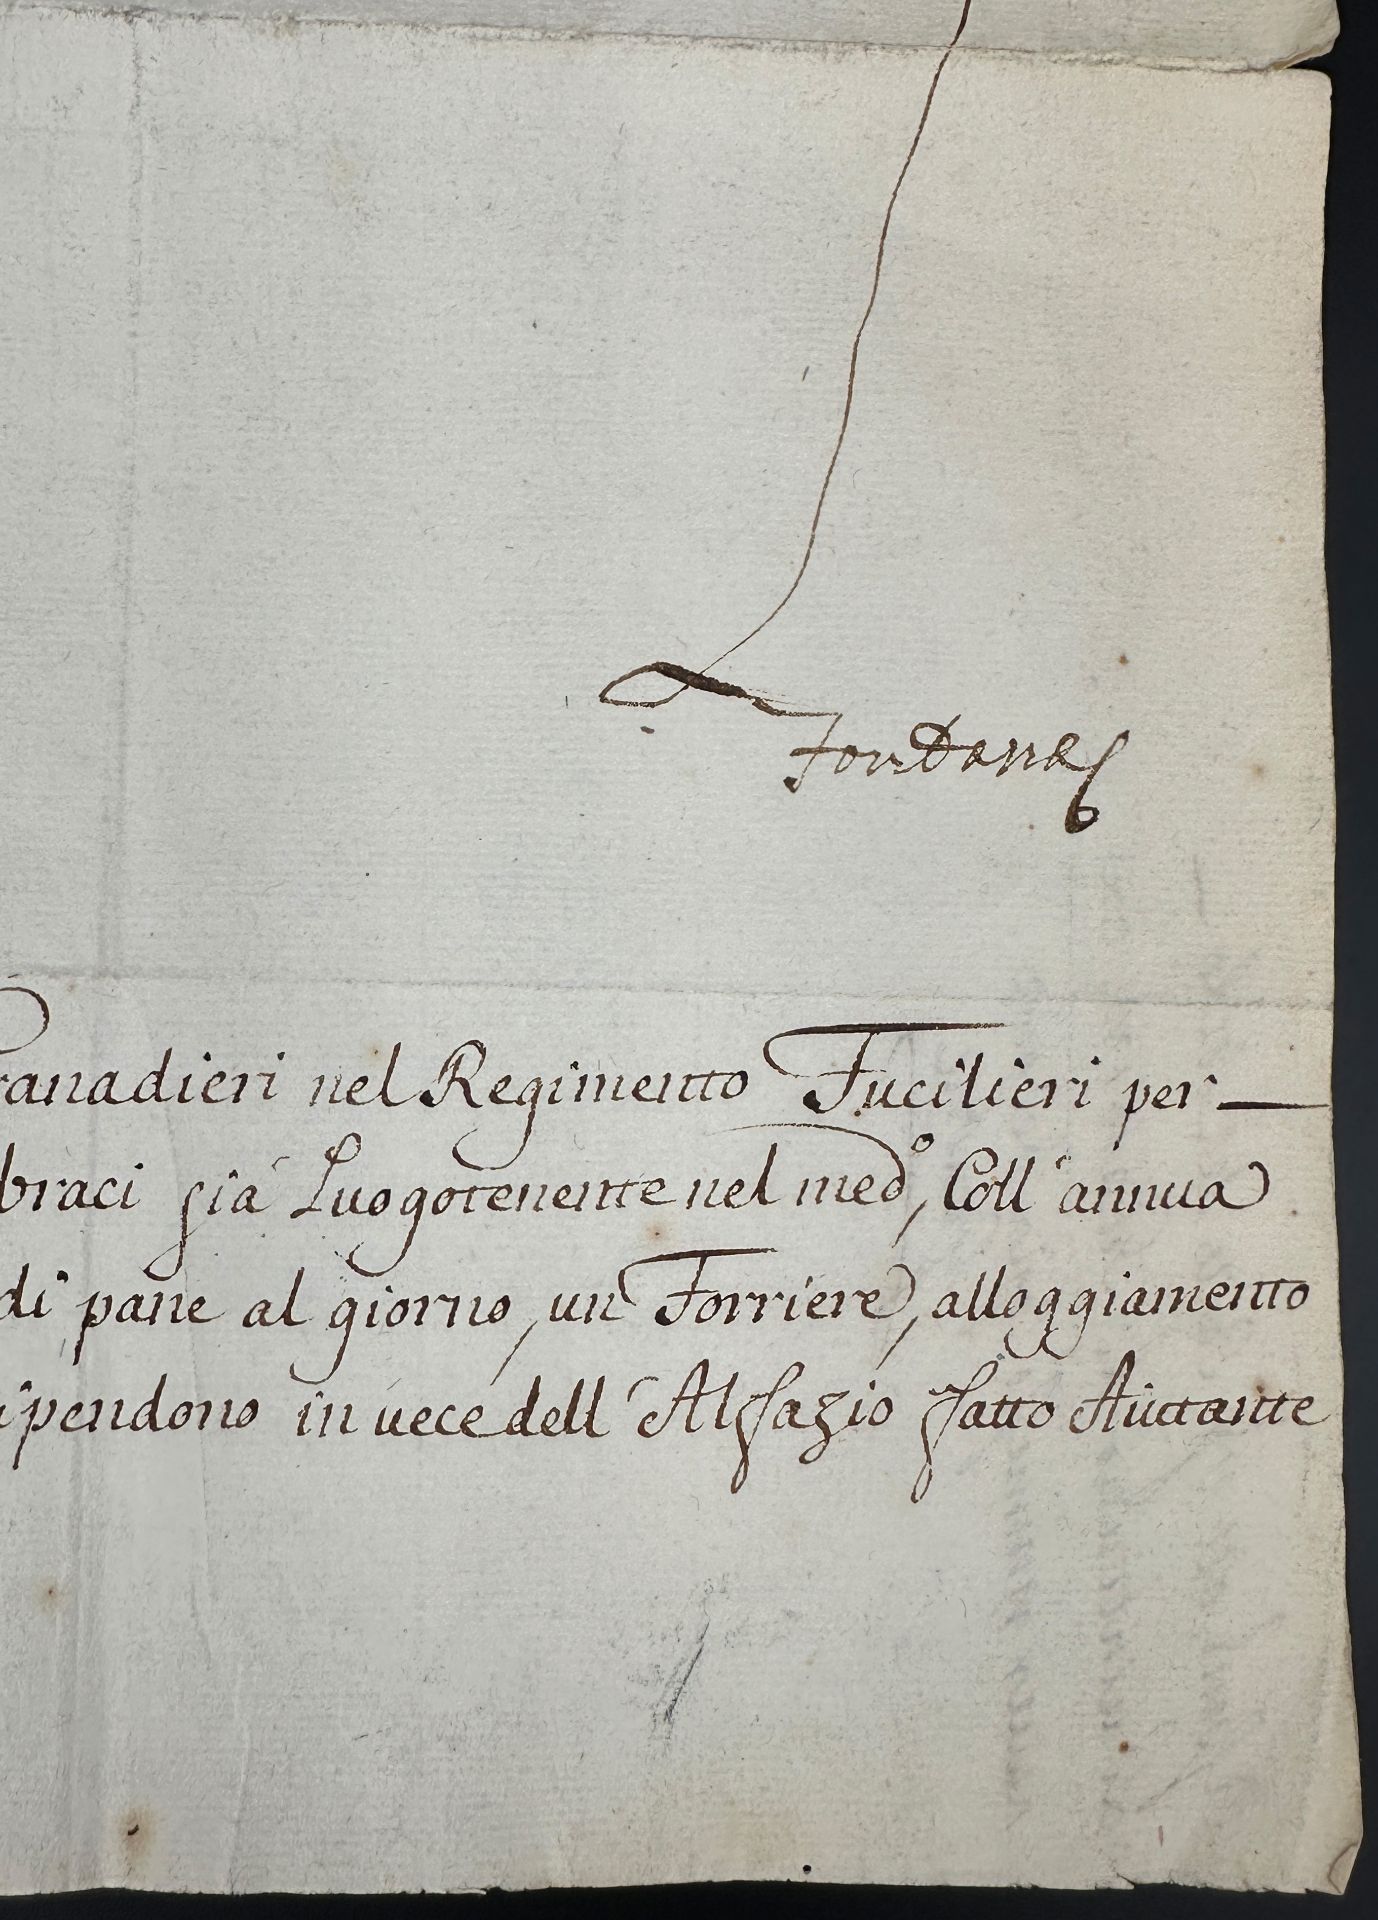 Fontana
ranadieri nel Regimento Fucilieri per
braci già Luogotenente nel med.º, Coll' annua
di pane al giorno, un Forriere, alloggiamento
ipendono in vece dell' Alfazio fatto Aiuttante